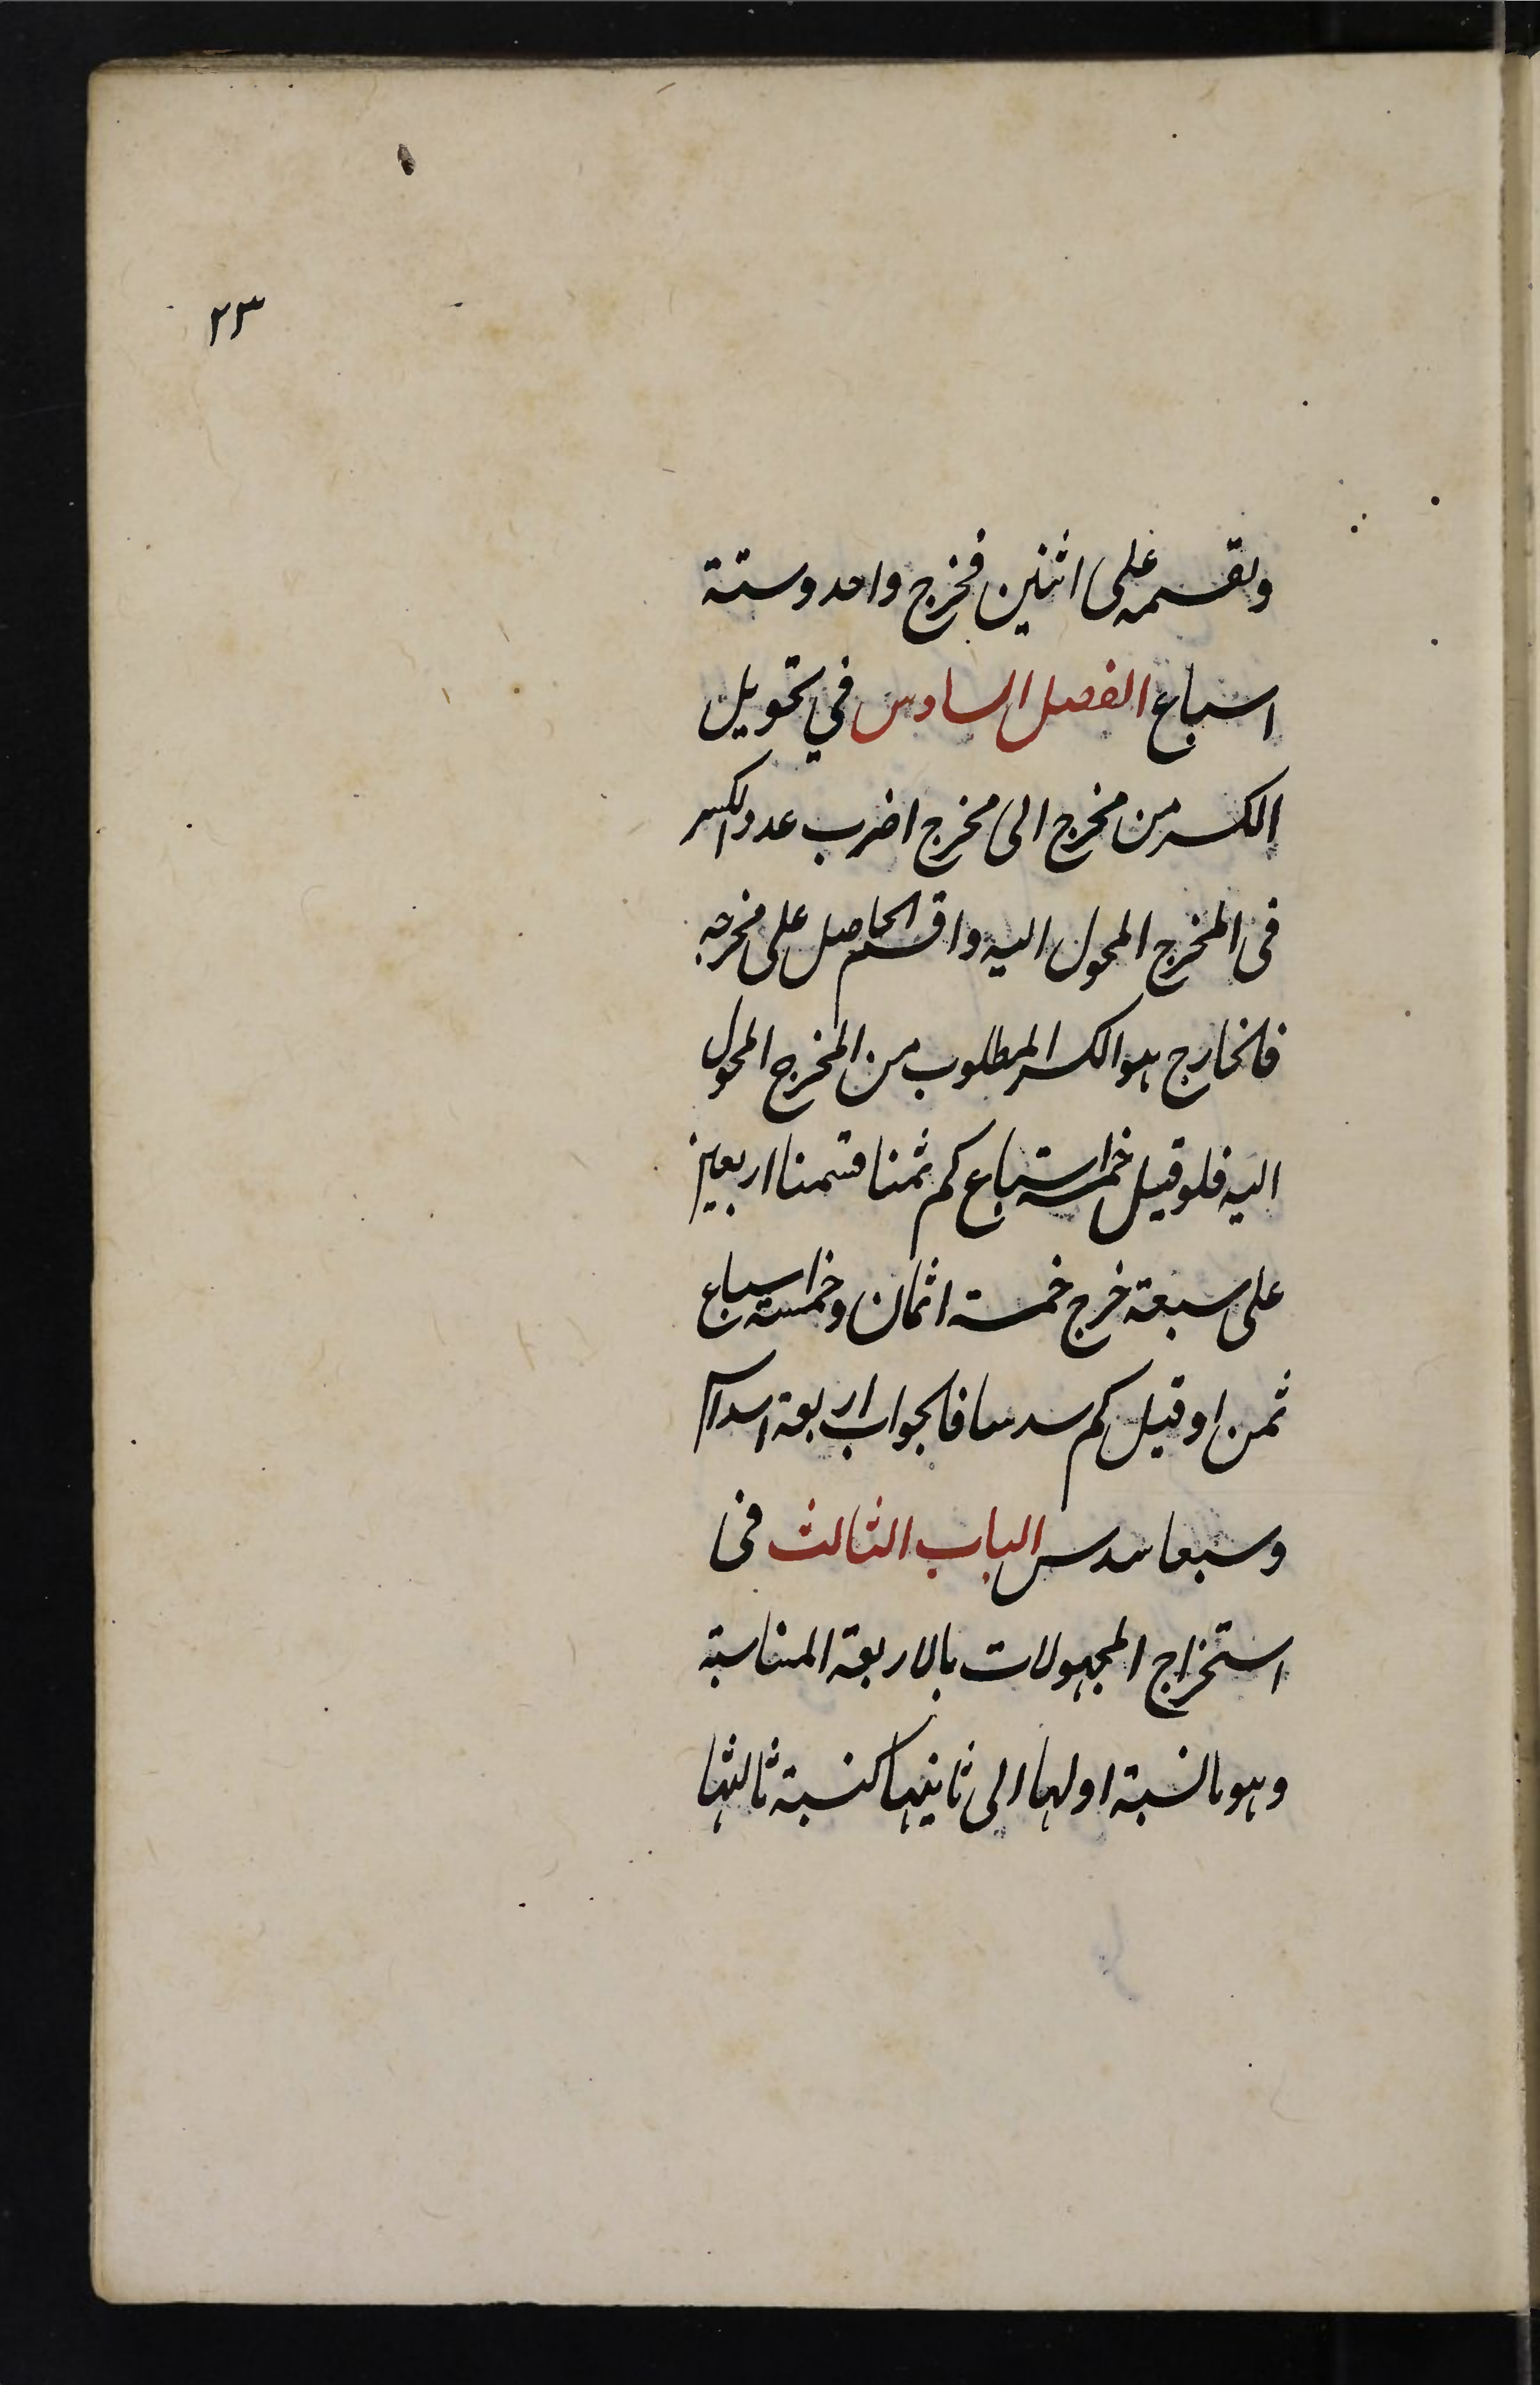 ٢٣
وتقسمه على اثنين فخرج واحد وستة
اسباع الفصل السادس في تحويل
الكسر من مخرج الى مخرج اضرب عدد الكسر
في المخرج المحول اليه واقسم الحاصل على مخرجه
فالخارج هو الكسر المطلوب من المخرج المحول
اليه فلو قيل خمسة اسباع كم ثمنا قسمنا اربعين
على سبعة خرج خمسة اثمان وخمسة اسباع
ثمن او قيل كم سدسا فالجواب اربعة اسداس
وسبعا سدس الباب الثالث فى
استخراج المجهولات بالاربعة المتناسبة
وهو ما نسبة اولها الى ثانيها كنسبة ثالثها